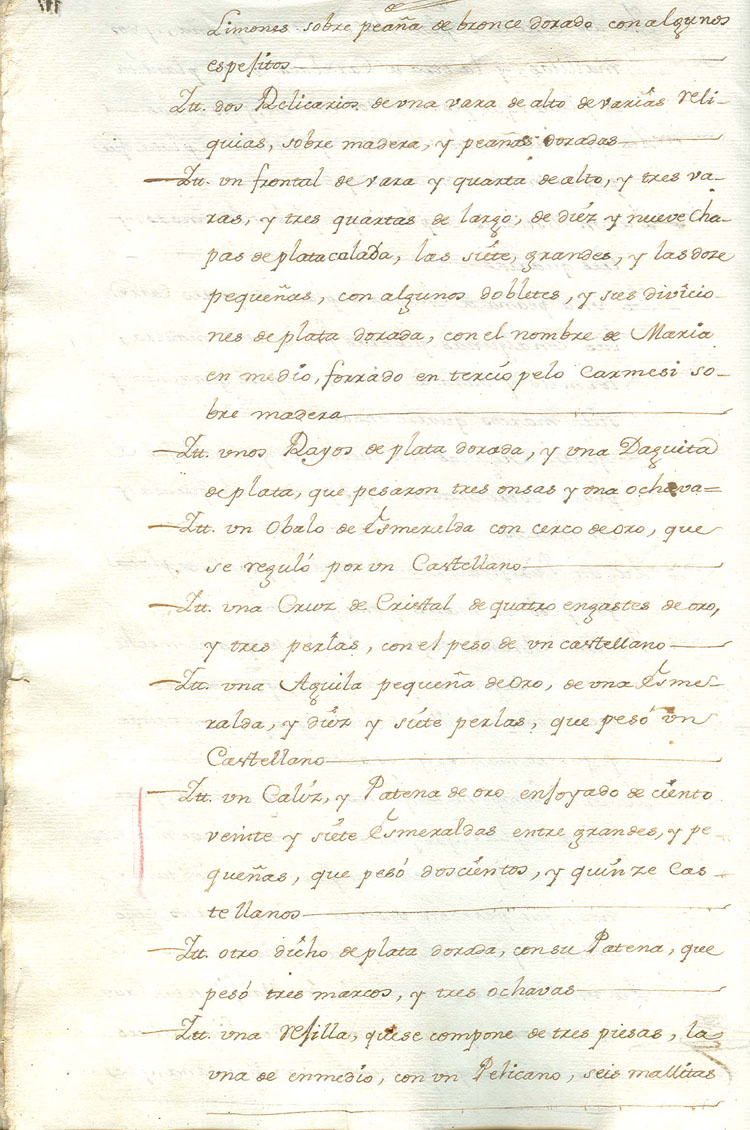 Limones sobre peaña de bronce dorado con algunos
espejitos
Itt. dos Relicarios de vna vara de alto de varias reli-
quias, sobre madera, y peañas doradas
Itt. vn frontal de vara y quarta de alto, y tres va-
ras, y tres quartas de largo, de diéz y nueve cha-
pas de plata calada, las siéte, grandes, y las doze
pequeñas, con algunos dobletes, y sus divicio-
nes de plata dorada, con el nombre de Maria
en medio, forrado en tercio pelo Carmesi so-
bre madera
Itt. vnos Rayos de plata dorada, y vna Daguita
de plata, que pesaron tres onsas y vna ochava=
Itt. vn Obalo de Esmeralda con cerco de oro, que
se reguló por vn Castellano
Itt. vna Cruz de Cristal de quatro engastes de oro,
y tres perlas, con el peso de vn castellano
Itt. vna Aguila pequeña de oro, de vna Esme-
ralda, y diéz y siéte perlas, que pesó vn
Castellano
Itt. vn Calíz, y Patena de oro enjoyado de ciénto
veinte y siéte Esmeraldas entre grandes, y pe
queñas, que pesó doscientos, y quínze Cas-
tellanos
Itt. otro dícho de plata dorada, con su Patena, que
pesó tres marcos, y tres ochavas
Itt. vna Resilla, que se compone de tres piesas, la
vna de enmedio, con vn Pelicano, seis mallitas